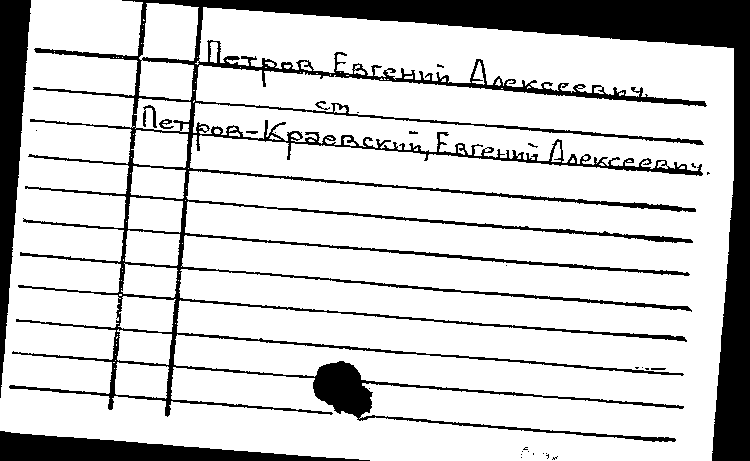 Петров, Евгений Алексеевич.
см
Петров-Краевский, Евгений Алексеевич.